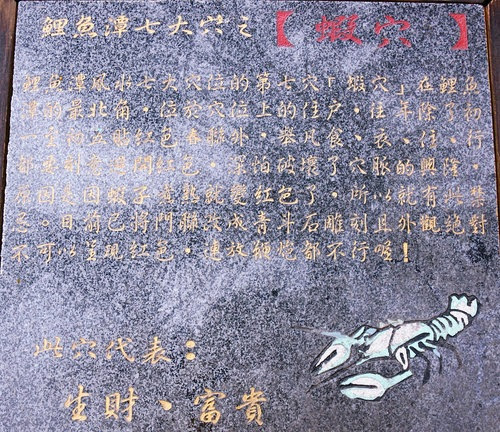 鯉魚潭七大穴之【蝦穴】
鯉魚潭風水七大穴位的第七穴「蝦穴」在鯉魚
潭的最北角,位於穴位上的住戶,往年除了初
一至初五貼紅色春聯外,舉凡食、衣、住、行
都要刻意避開紅色,深怕破壞了穴脈的興隆,
原因是因蝦子煮熟就變紅色了,所以就有此禁
忌。目前已將門聯改成青斗石雕刻且外觀絕對
不可以呈現紅色,連放鞭炮都不行喔!
此穴代表:
生財、富貴